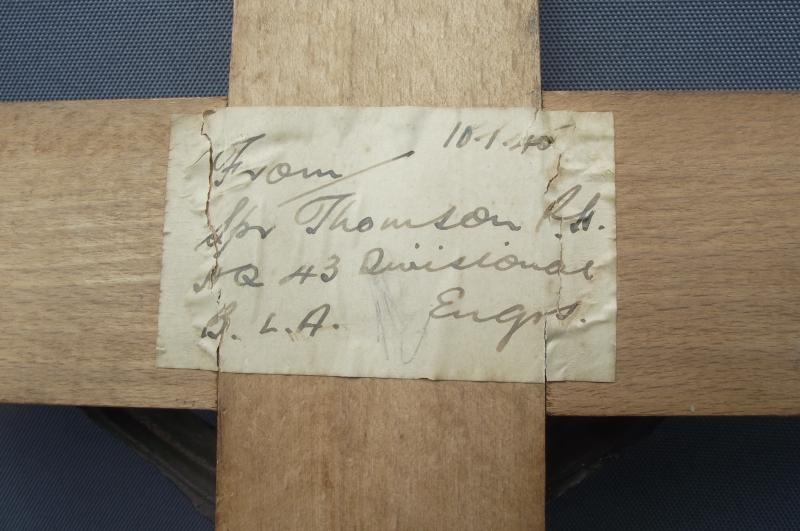 10.1.45
From/
Spr Thomson P.H.
HQ 43 Divisional
B.L.A. Engrs.